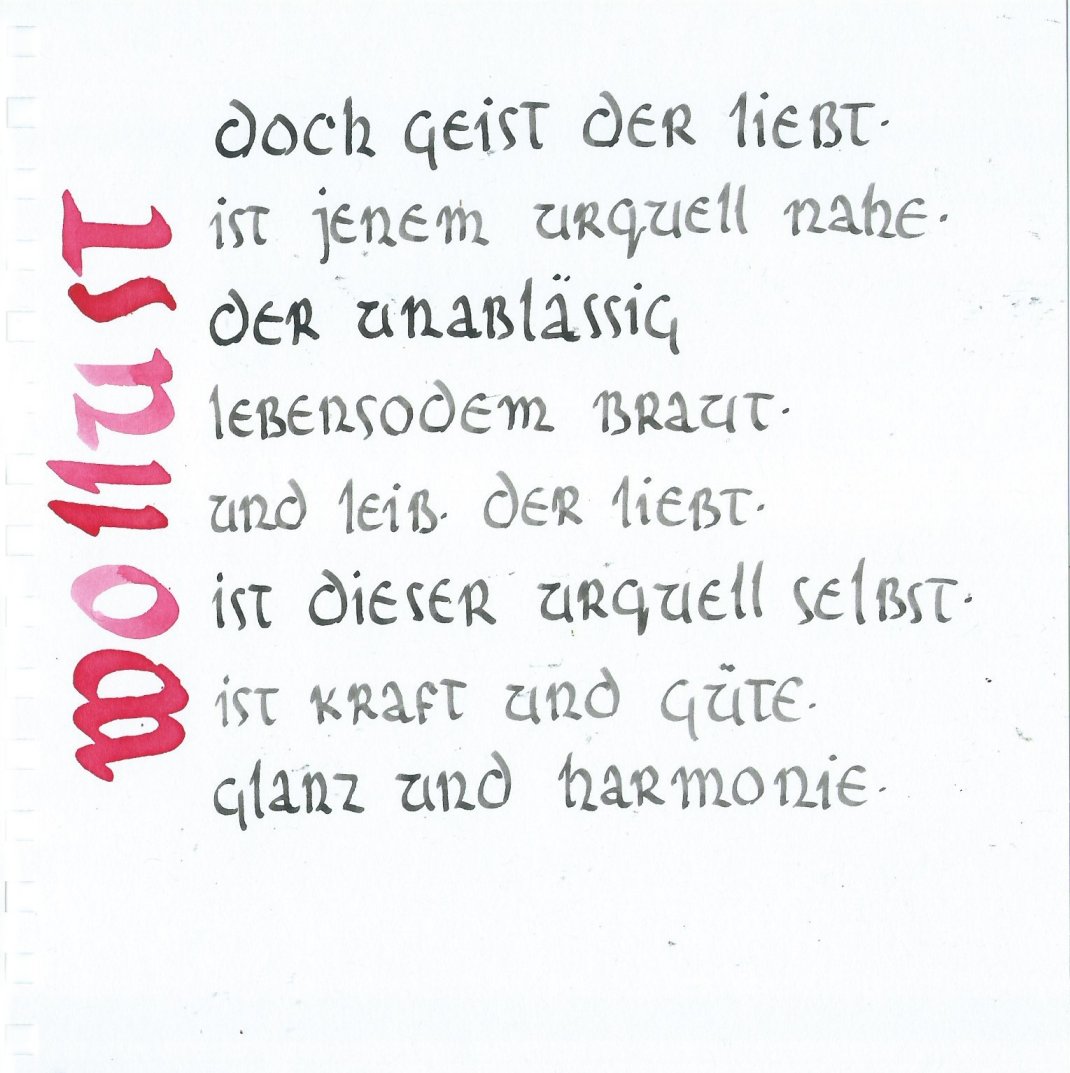 wollust
doch geist der liebt·
ist jenem urquell nahe·
der unablässig
lebensodem braut·
und leib· der liebt·
ist dieser urquell selbst·
ist kraft und güte·
glanz und harmonie·